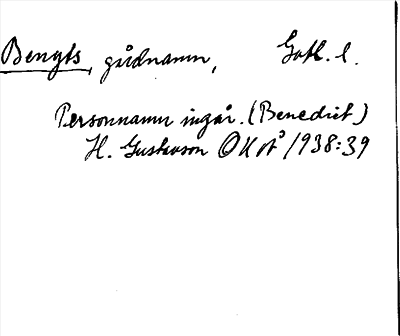 Bengts, gårdnamn, Gotl. l.
Personnamn ingår. (Benedict)
H. Gustavson OKot° 1938:39